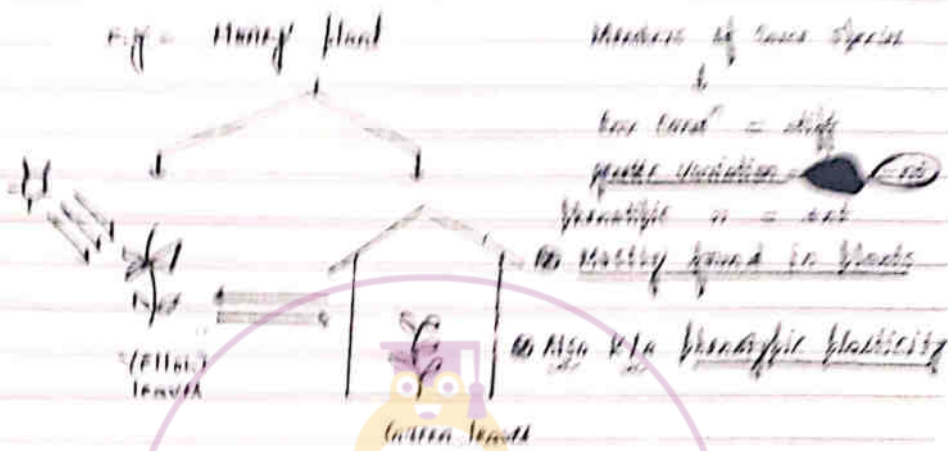 E.g = Money plant
Members of same species
Env Cond^n = diff
Genetic variation =
Phenotypic " = ent
Mostly found in plants
Also k/a phenotypic plasticity
leaves
Green leaves